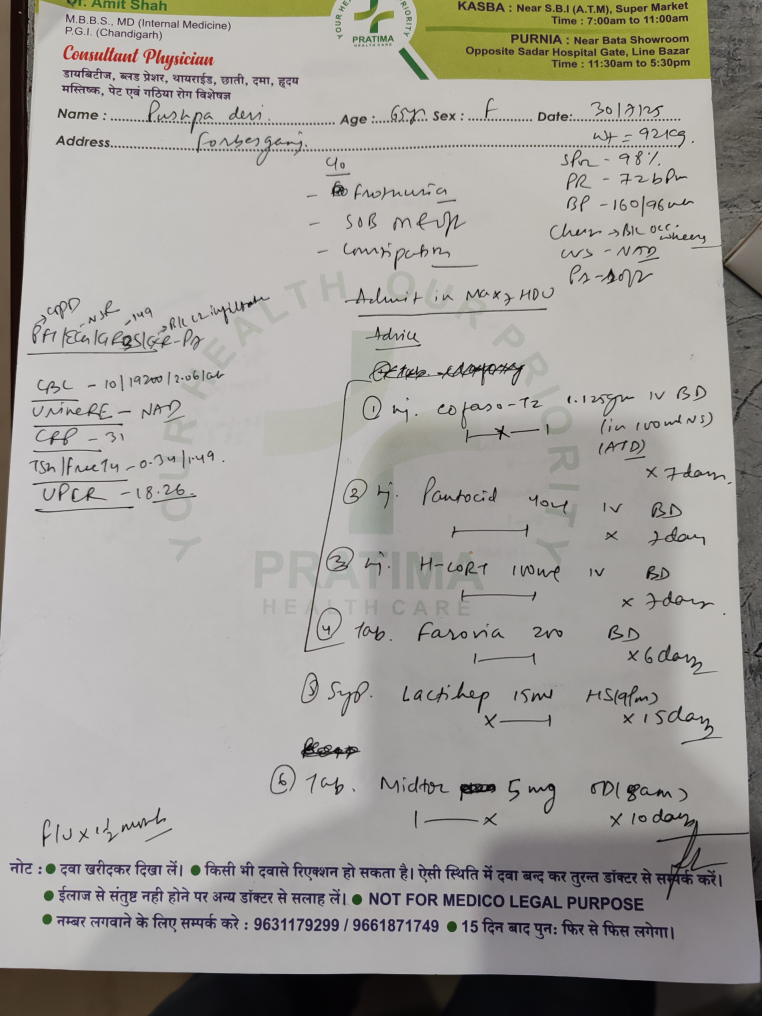 Dr. Amit Shah
M.B.B.S., MD (Internal Medicine)
P.G.I. (Chandigarh)
Consultant Physician
डायबिटीज, ब्लड प्रेशर, थायराईड, छाती, दमा, हृदय
मस्तिष्क, पेट एवं गठिया रोग विशेषज्ञ
YOUR HEALTH PRIORITY
PRATIMA
HEALTH CARE
KASBA : Near S.B.I (A.T.M), Super Market
Time : 7:00am to 11:00am
PURNIA : Near Bata Showroom
Opposite Sadar Hospital Gate, Line Bazar
Time : 11:30am to 5:30pm
Name : Pushpa devi Age : 65yr Sex : F Date: 30/7/25
Address Forbesganj wt = 92kg.
c/o
- Frothuria
- SOB
- Constipation
SPO2 - 98%
PR - 72 bPm
BP - 160/96
Chest → B/L occ. wheeze
CVS - NAD
P/A - soft
Admit in HDU
Advice
COPD NSR 149 B/L LZ infiltrate
PFT/ECG/GRBS/CXR-PA
CBC - 10/19200/2.06
Urine RE - NAD
CRP - 31
TSH/Free T4 - 0.34/1.49.
UPCR - 18.26.
① Inj. Cofaso-TZ 1.125gm IV BD
(in 100ml NS)
(ATD)
x 7 days.
② Inj. Pantocid 40 IV BD
x 7 day
③ Inj. H-CORT 100mg IV BD
x 7 days
④ Tab. Farovia 200 BD
x 6 days
⑤ Syp. Lactihep 15ml HS (9pm)
x 15 days
⑥ Tab. Midtor 5 mg OD (8am)
x 10 days
F/U x 1½ month
YOUR HEALTH OUR PRIORITY
PRATIMA
HEALTH CARE
नोट : ● दवा खरीदकर दिखा लें। ● किसी भी दवासे रिएक्शन हो सकता है। ऐसी स्थिति में दवा बन्द कर तुरन्त डॉक्टर से सम्पर्क करें।
● ईलाज से संतुष्ट नही होने पर अन्य डॉक्टर से सलाह लें। ● NOT FOR MEDICO LEGAL PURPOSE
● नम्बर लगवाने के लिए सम्पर्क करे : 9631179299 / 9661871749 ● 15 दिन बाद पुनः फिर से फिस लगेगा।